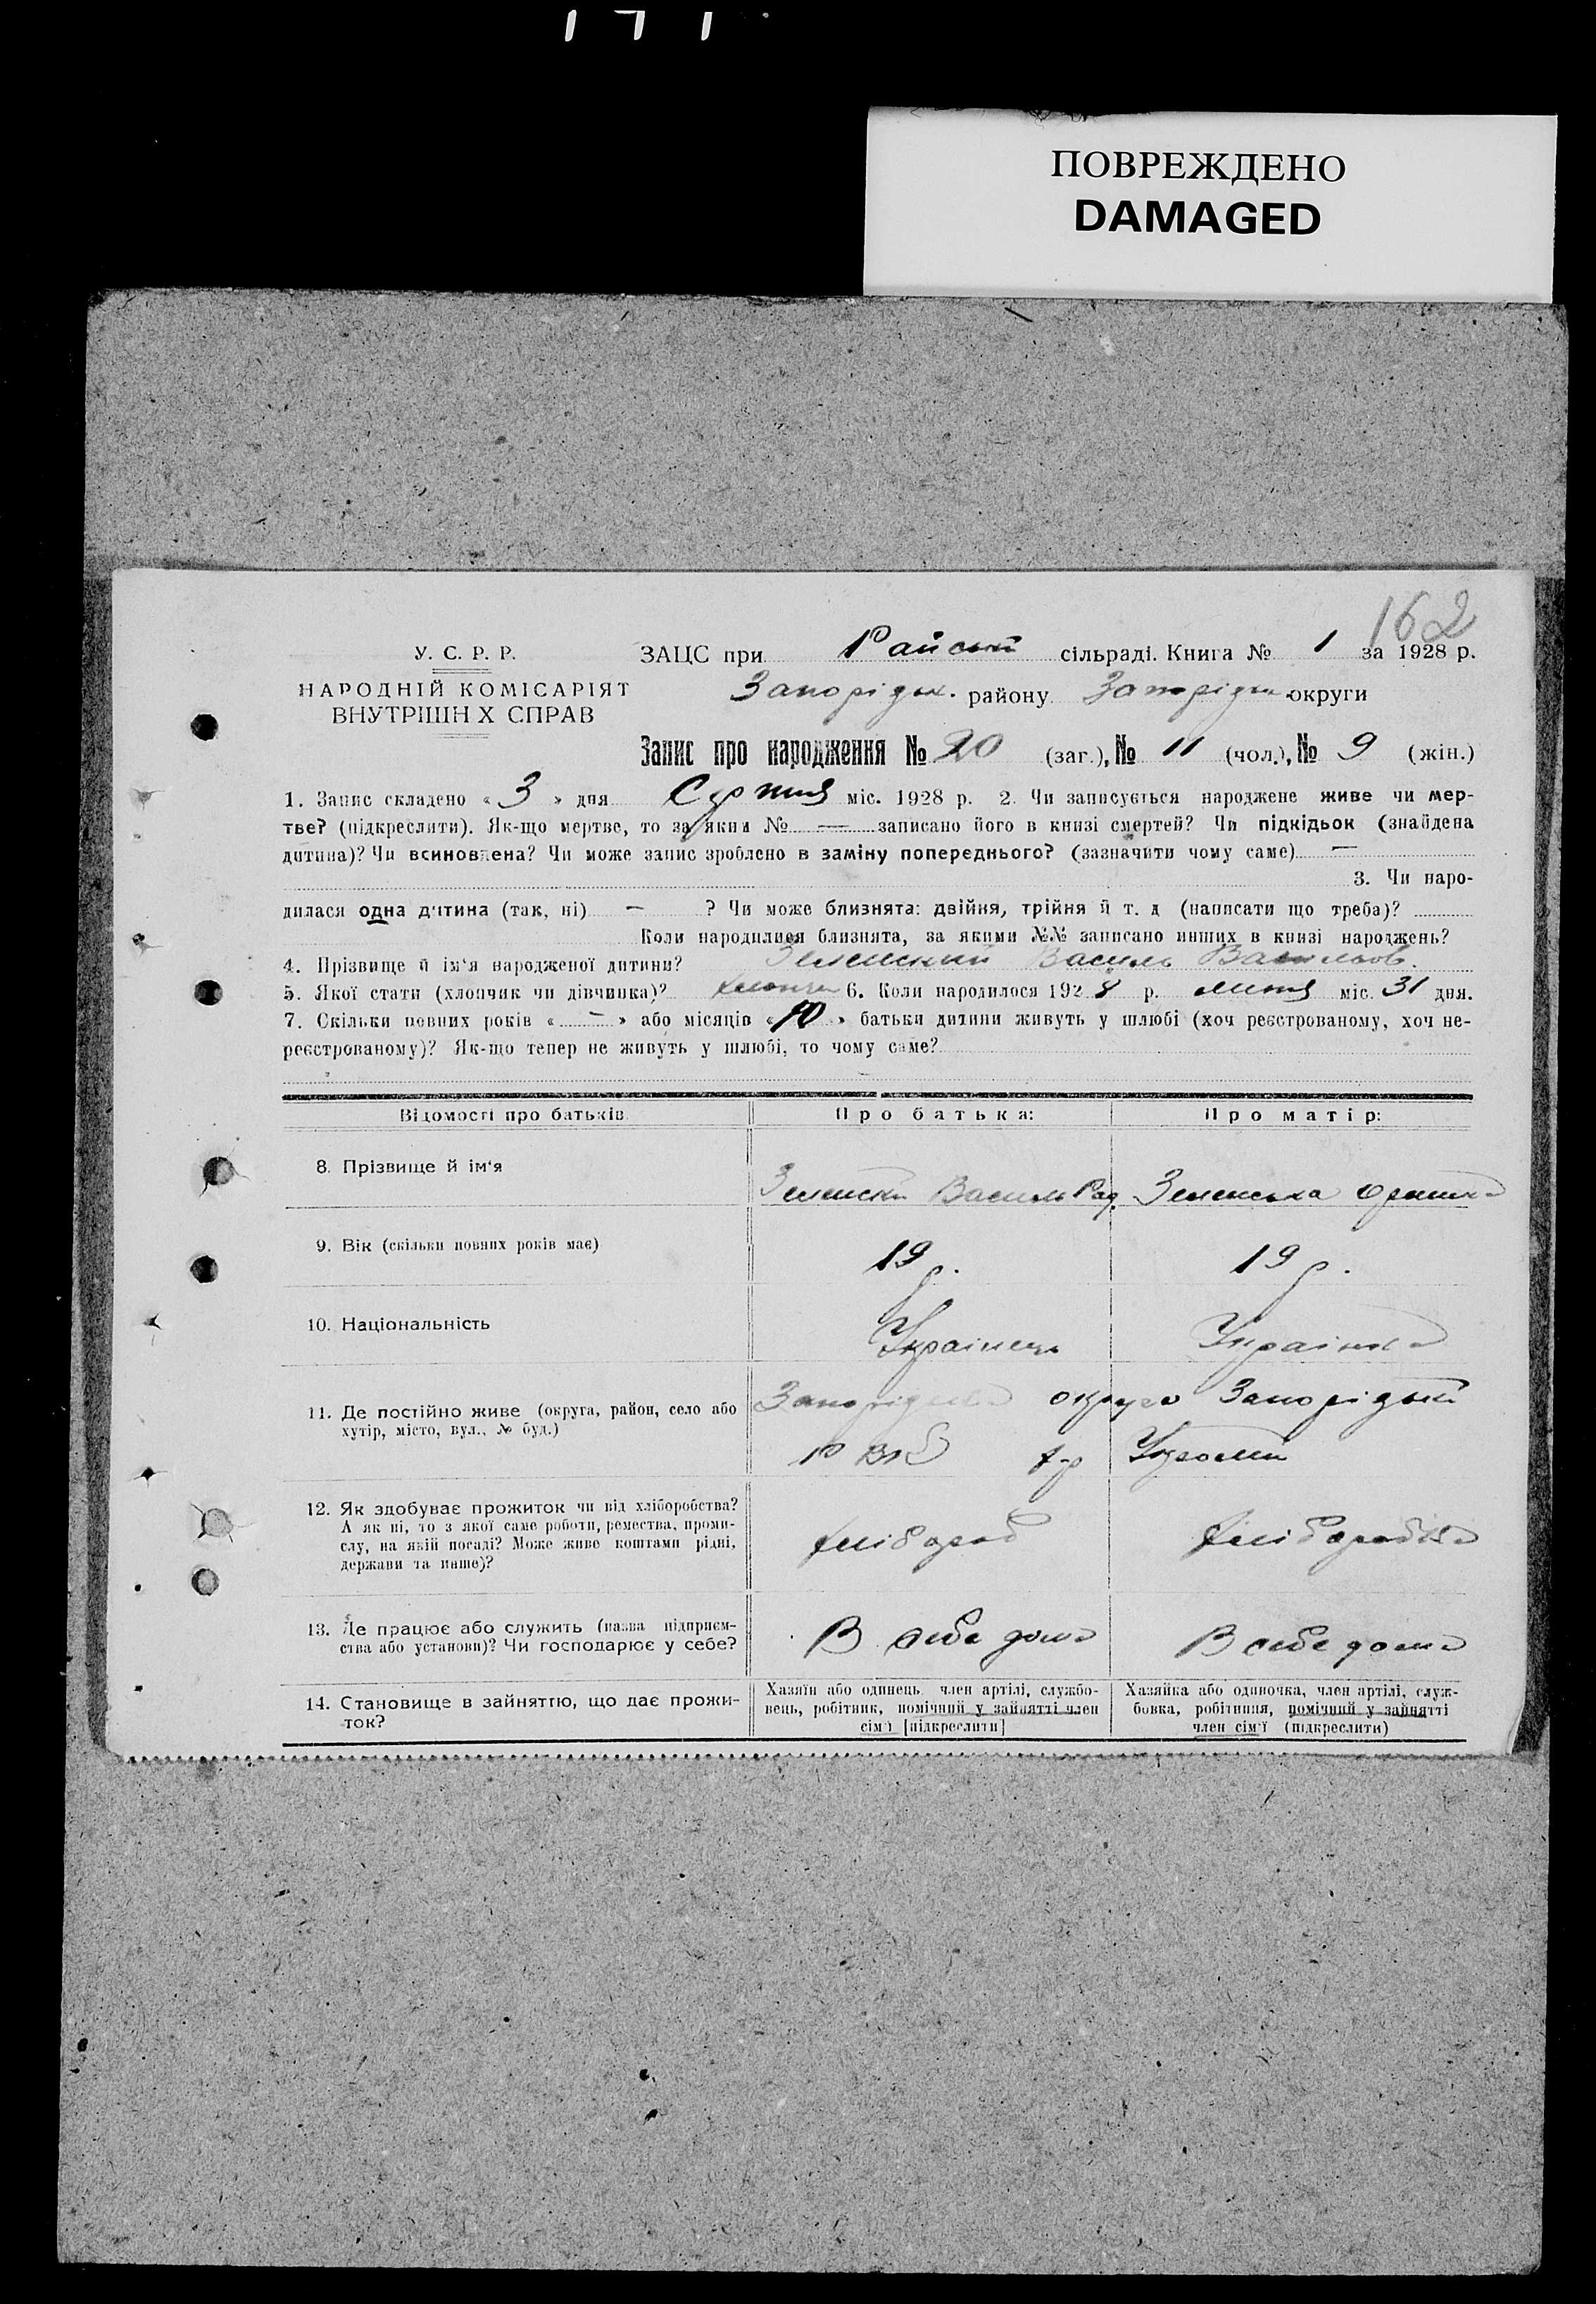 ПОВРЕЖДЕНО
DAMAGED
162
У. С. Р. Р.
НАРОДНІЙ КОМІСАРІЯТ
ВНУТРІШН Х СПРАВ
ЗАЦС при Райській сільраді. Книга № 1 за 1928 р.
Запорізьк. району Запорізьк округи
Запис про народження № 20 (заг.), № 11 (чол.), № 9 (жін.)
1. Запис складено « 3 » дня Серпня міс. 1928 р. 2. Чи записується народжене живе чи мер-
тве? (підкреслити). Як-що мертве, то за яким № — записано його в книзі смертей? Чи підкідьок (знайдена
дитина)? Чи всиновлена? Чи може запис зроблено в заміну попереднього? (зазначити чому саме) —
3. Чи наро-
дилася одна дитина (так, ні) — ? Чи може близнята: двійня, трійня й т. д (написати що треба)?
Коли народилися близнята, за якими №№ записано инших в книзі народжень?
4. Прізвище й ім'я народженої дитини? Зеленский Василь Васильов.
5. Якої стати (хлопчик чи дівчинка)? хлопчик 6. Коли народилося 1928 р. липня міс. 31 дня.
7. Скільки повних років « — » або місяців « 10 » батьки дитини живуть у шлюбі (хоч реєстрованому, хоч не-
реєстрованому)? Як-що тепер не живуть у шлюбі, то чому саме?
Відомості про батьків Про батька: Про матір:
8. Прізвище й ім'я
Зеленски Василь Рад. Зеленська Оришка
9. Вік (скільки повних років має)
19 р. 19 р.
10. Національність
Українець Українка
11. Де постійно живе (округа, район, село або
хутір, місто, вул., № буд.)
Запорізька округа Запорізький
х-р
12. Як здобуває прожиток чи від хліборобства?
А як ні, то з якої саме роботи, ремества, проми-
слу, на якій посаді? Може живе коштами рідні,
держави та инше)?
хлібороб хліборобка
13. Де працює або служить (назва підприєм-
ства або установи)? Чи господарює у себе?
В себе дома В себе дома
14. Становище в зайняттю, що дає прожи-
ток?
Хазяїн або одинець, член артілі, службо-
вець, робітник, помічний у зайнятті член
сім'ї [підкреслити]
Хазяйка або одиночка, член артілі, служ-
бовка, робітниця, помічний у зайнятті
член сім'ї (підкреслити)